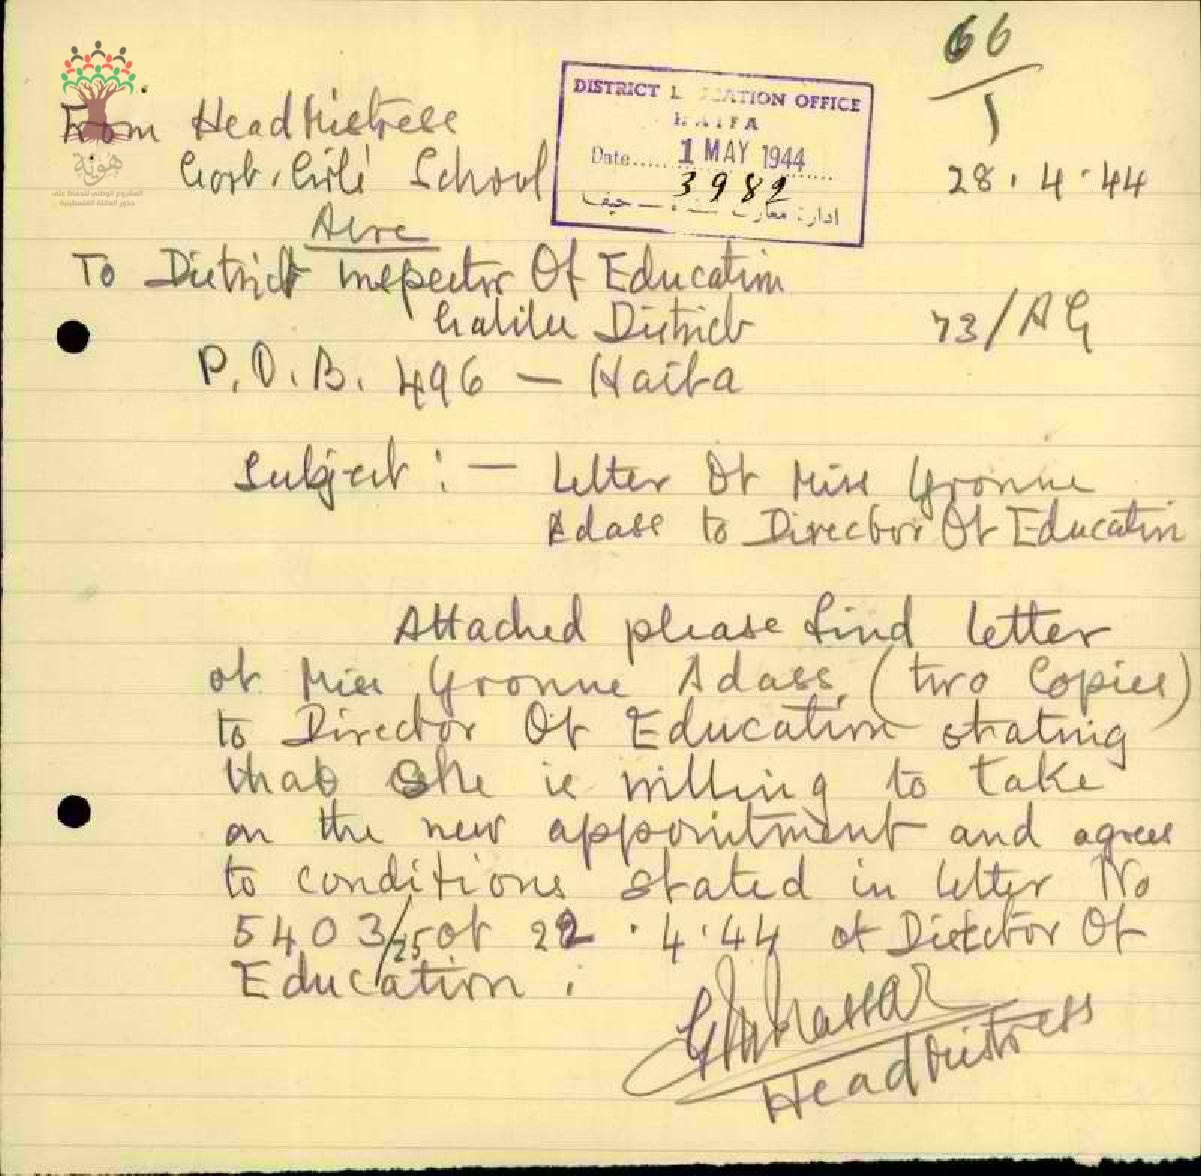 66
1
From HeadMistress
Govt. Girls' School
Acre
28.4.44
DISTRICT EDUCATION OFFICE
HAIFA
Date..... 1 MAY 1944
3982
ادارة معارف حيفا
To District Inspector Of Education
Galilee District
73/AG
P.O.B. 496 — Haifa
Subject :— Letter Of Miss Yvonne
Adass to Director Of Education
Attached please find letter
of Miss Yvonne Adass, (two Copies)
to Director Of Education stating
that She is willing to take
on the new appointment and agrees
to conditions stated in letter No
5403/25 of 22.4.44 of Director Of
Education.
HeadMistress
هُويّة
المشروع الوطني للحفاظ على
جذور العائلة الفلسطينية